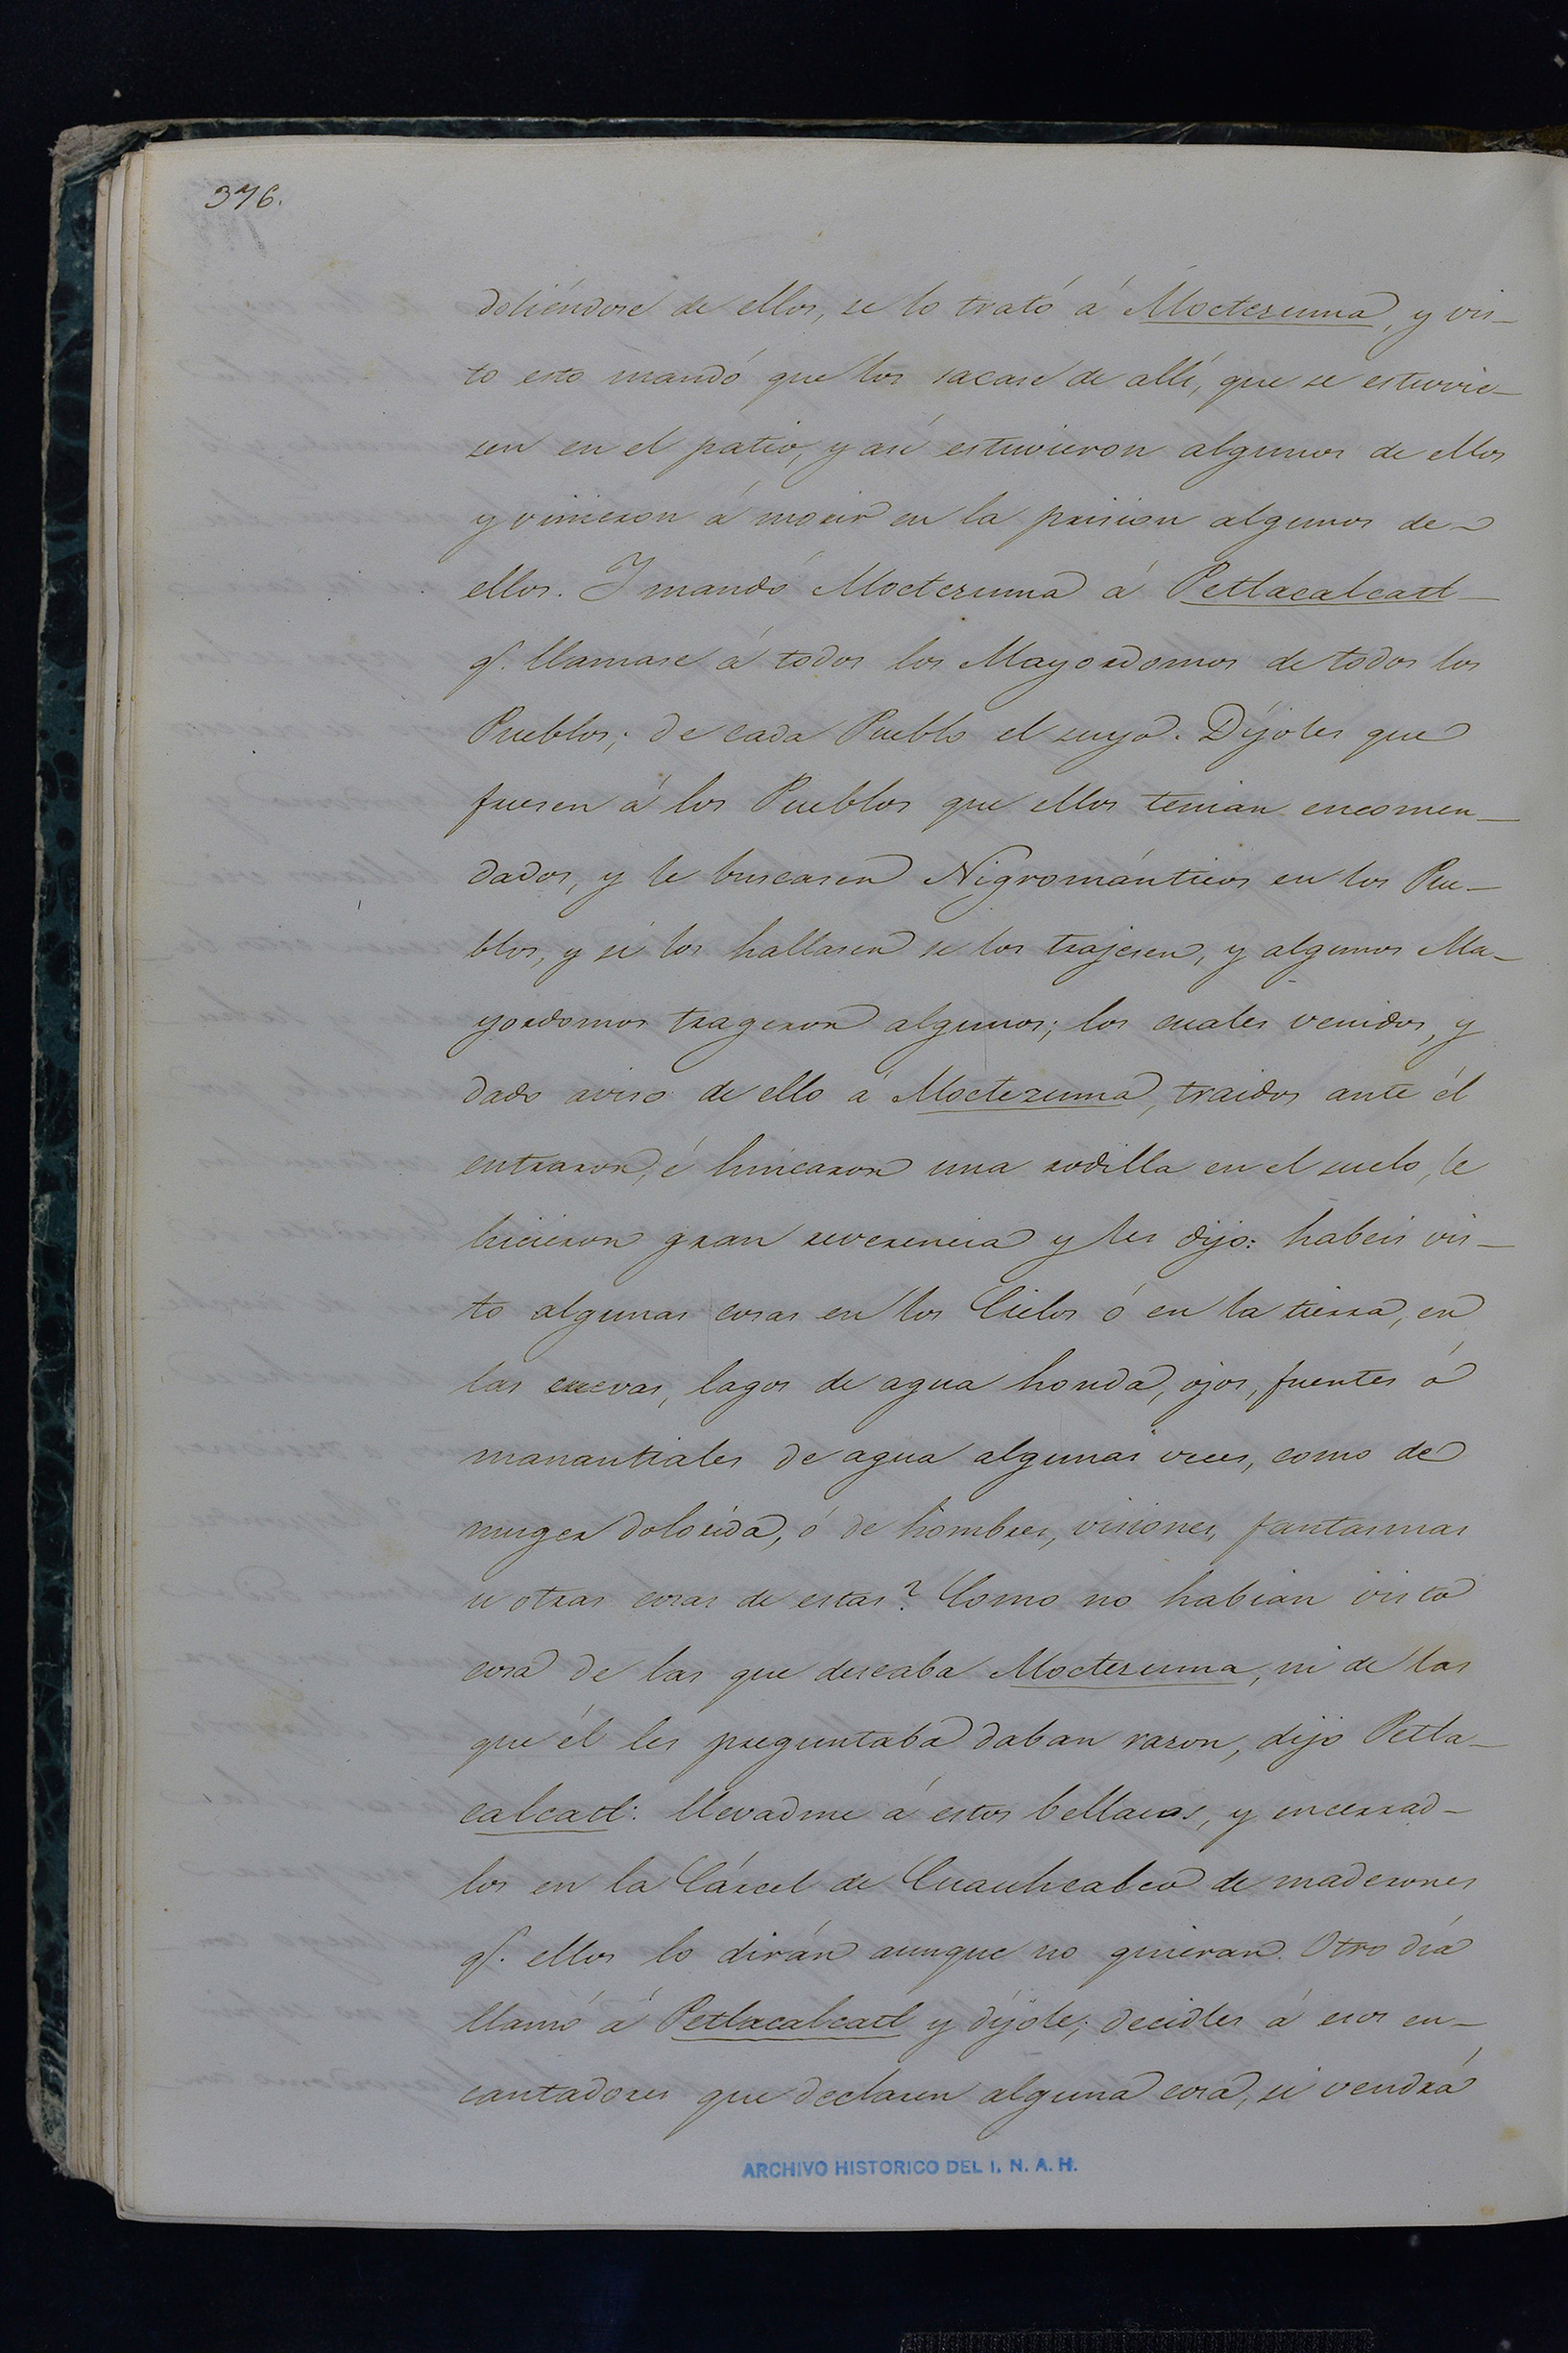 376.
doliéndose de ellos, se lo trató á Moctezuma, y vis-
to esto mandó que los sacase de allí, que se estuvie-
sen en el patio, y asi estuvieron algunos de ellos
y vinieron á morir en la prision algunos de
ellos. I mandó Moctezuma á Petlacalcatl
q.e llamase á todos los Mayordomos de todos los
Pueblos; de cada Pueblo el suyo. Díjoles que
fuesen á los Pueblos que ellos tenian encomen-
dados, y le buscasen Nigrománticos en los Pue-
blos, y si los hallasen se los trajesen, y algunos Ma-
yordomos trageron algunos; los cuales venidos, y
dado aviso de ello a Moctezuma, traidos ante él
entraron, é hincaron una rodilla en el suelo, le
hicieron gran reverencia y les dijo: habeis vis-
to algunas cosas en los Cielos ó en la tierra, en
las cuevas, lagos de agua honda, ojos, fuentes ó
manantiales de agua algunas voces, como de
muger dolorida, ó de hombres, visiones, fantasmas
u otras cosas de estas? Como no habian visto
cosa de las que deseaba Moctezuma, ni de las
que él les preguntaba daban razon, dijo Petla-
calcatl: llevadme á estos bellacos, y encerrad-
los en la Cárcel de Cuauhcalco de maderones
q.e ellos lo dirán aunque no quieran. Otro día
llamó á Petlacalcatl y díjole; decidles á esos en-
cantadores que declaren alguna cosa, si vendrá
ARCHIVO HISTORICO DEL I. N. A. H.